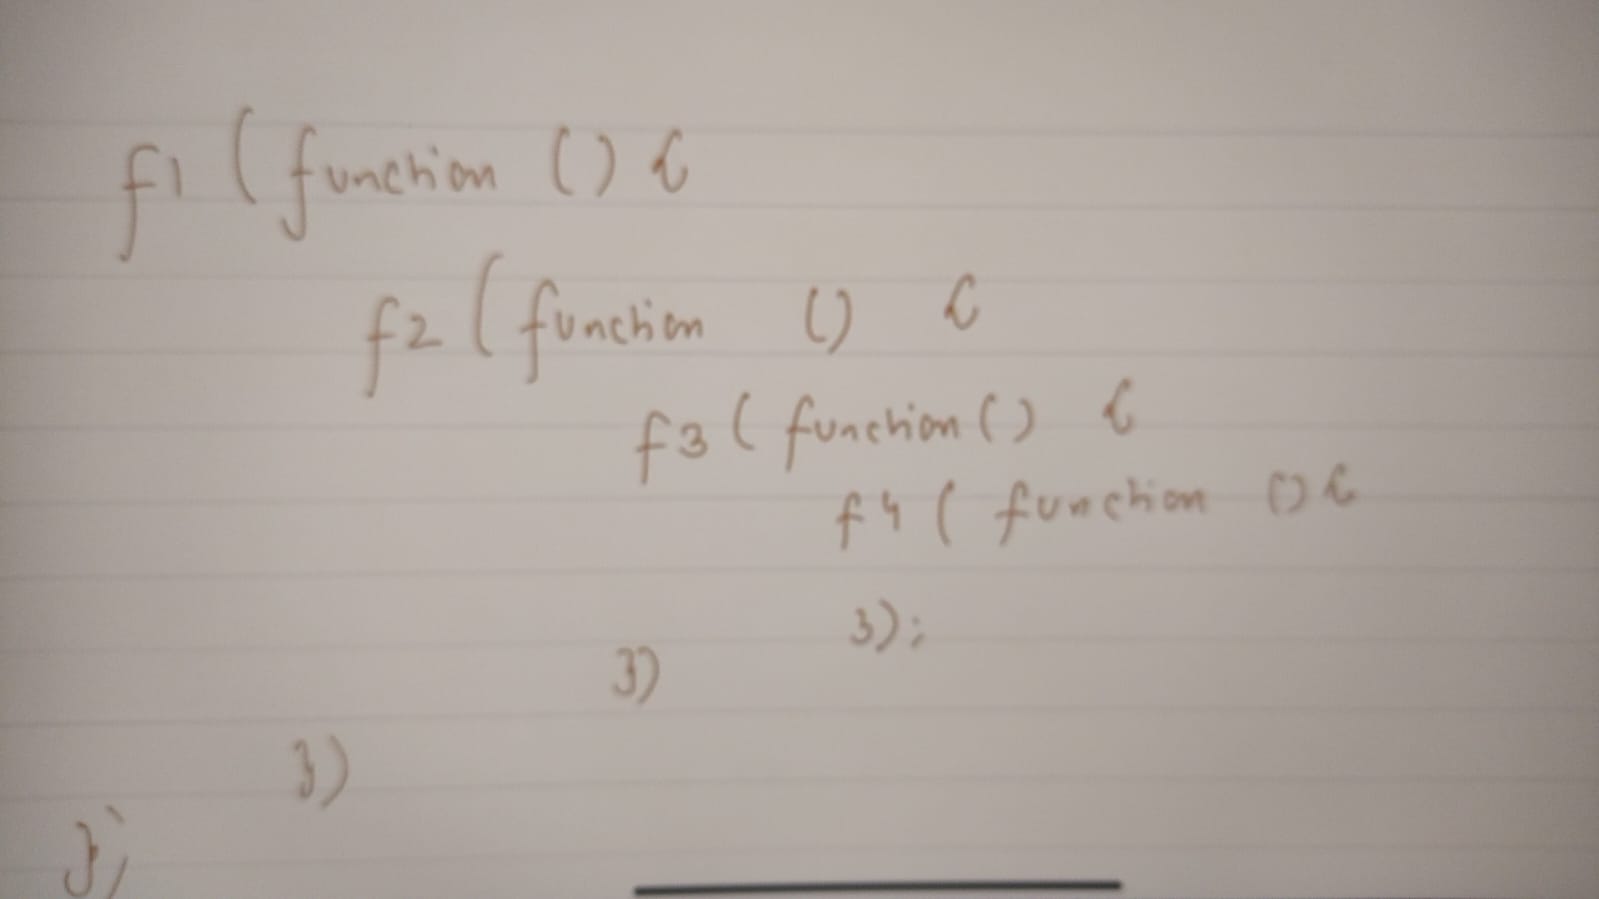 f1 ( function () {
f2 ( function () {
f3 ( function () {
f4 ( function () {
});
})
})
});